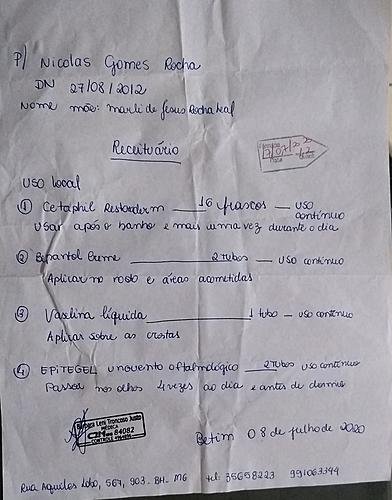 P/ Nicolas Gomes Rocha
DN 27/08/2012
Nome mãe: Marli de Jesus Rocha Leal
Receituário
USO local
① Cetaphil Restoraderm — 16 frascos — uso contínuo
Usar após o banho e mais uma vez durante o dia
② Bepantol Creme — 2 tubos — uso contínuo
Aplicar no rosto e áreas acometidas
③ Vaselina líquida — 1 tubo — uso contínuo
Aplicar sobre as crostas
④ EPITEGEL unguento oftalmológico — 2 tubos uso contínuo
Passar nos olhos 4 vezes ao dia e antes de dormir
Bárbara Leni Troncoso Justo
MÉDICA
CRM 84082
Betim 08 de julho de 2020
Rua Aquiles Lobo, 567, 903 - BH - MG tel: 35658223 991063344